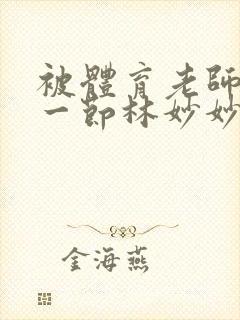 被體育老師
一節林妙妙
金海燕